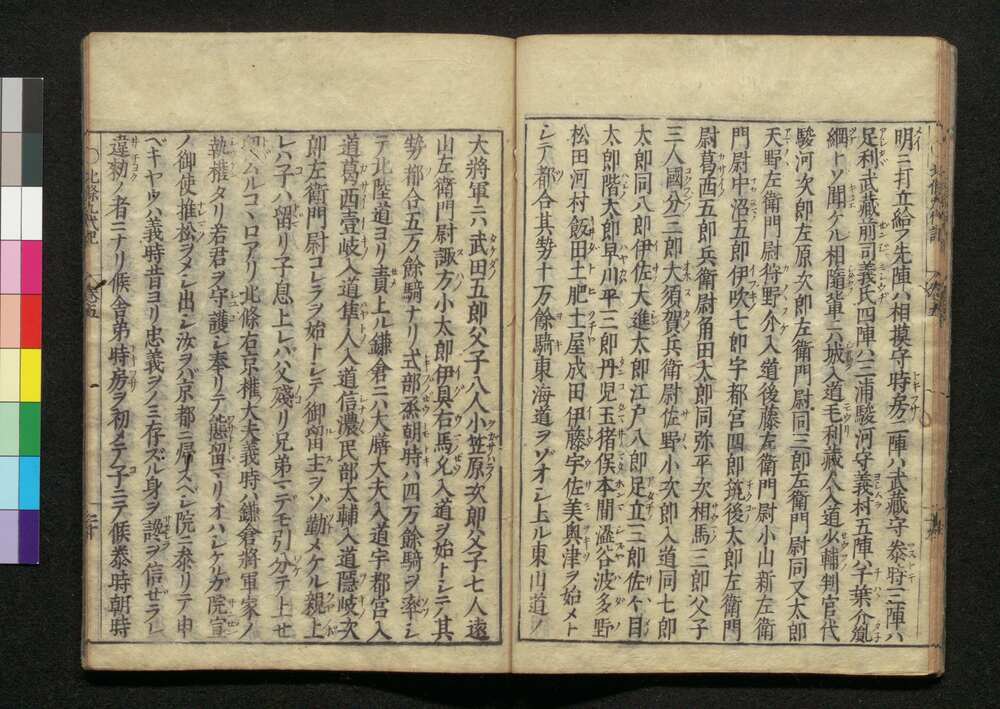 明ニ打立給フ先陣ハ相摸守時房二陣ハ武藏守泰時三陣ハ
足利武藏前司義氏四陣ハ三浦駿河守義村五陣ハ千葉介胤
綱トソ聞ケル相隨輩ニハ城入道毛利藏人入道少輔判官代
駿河次郎左原次郎左衛門尉同三郎左衛門尉同又太郎
天野左衛門尉狩野介入道後藤左衛門尉小山新左衛
門尉中沼五郎伊吹七郎宇都宮四郎筑後太郎左衛門
尉葛西五郎兵衛尉角田太郎同弥平次相馬三郎父子
三人國分三郎大須賀兵衛尉佐野小次郎入道同七郎
太郎同八郎伊佐大進太郎江戸八郎足立三郎佐々目
太郎階太郎早川平三郎丹児玉猪俣本間澁谷波多野
松田河村飯田土肥土屋成田伊藤宇佐美奥津ヲ始メト
シテ都合其勢十万餘騎東海道ヲゾオシ上ル東山道ノ
大將軍ニハ武田五郎父子八人小笠原次郎父子七人遠
山左衛門尉諏方小太郎伊具右馬允入道ヲ始トシテ其
勢都合五万餘騎ナリ式部丞朝時ハ四万餘騎ヲ率シ
テ北陸道ヨリ責上ル鎌倉ニハ大膳大夫入道宇都宮入
道葛西壹岐入道隼人入道信濃民部太輔入道隱岐次
郎左衛門尉コレラヲ始トシテ御留主ヲゾ勤メケル親上
レハ子ハ留リ子息上レハ父殘リ兄弟マデモ引分テ上セ
ハルコヽロアリ北條右京權大夫義時ハ鎌倉將軍家ノ
執權タリ若君ヲ守護シ奉リテ態留マリオハシケルガ院宣
ノ御使推松ヲメシ出シ汝ヲバ京都ニ歸スヘシ院ニ泰リテ申
ベキヤウハ義時昔ヨリ忠義ヲノミ存ズル身ヲ讒ヲ信ゼラレ
違勅ノ者ニナリ候舎弟時房ヲ初メテ子ニテ候泰時朝時
北條九代記